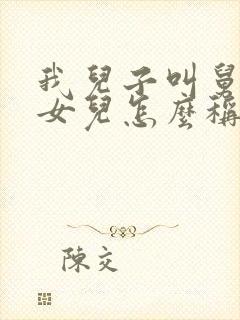 我兒子叫舅
女兒怎麼稱
陳交